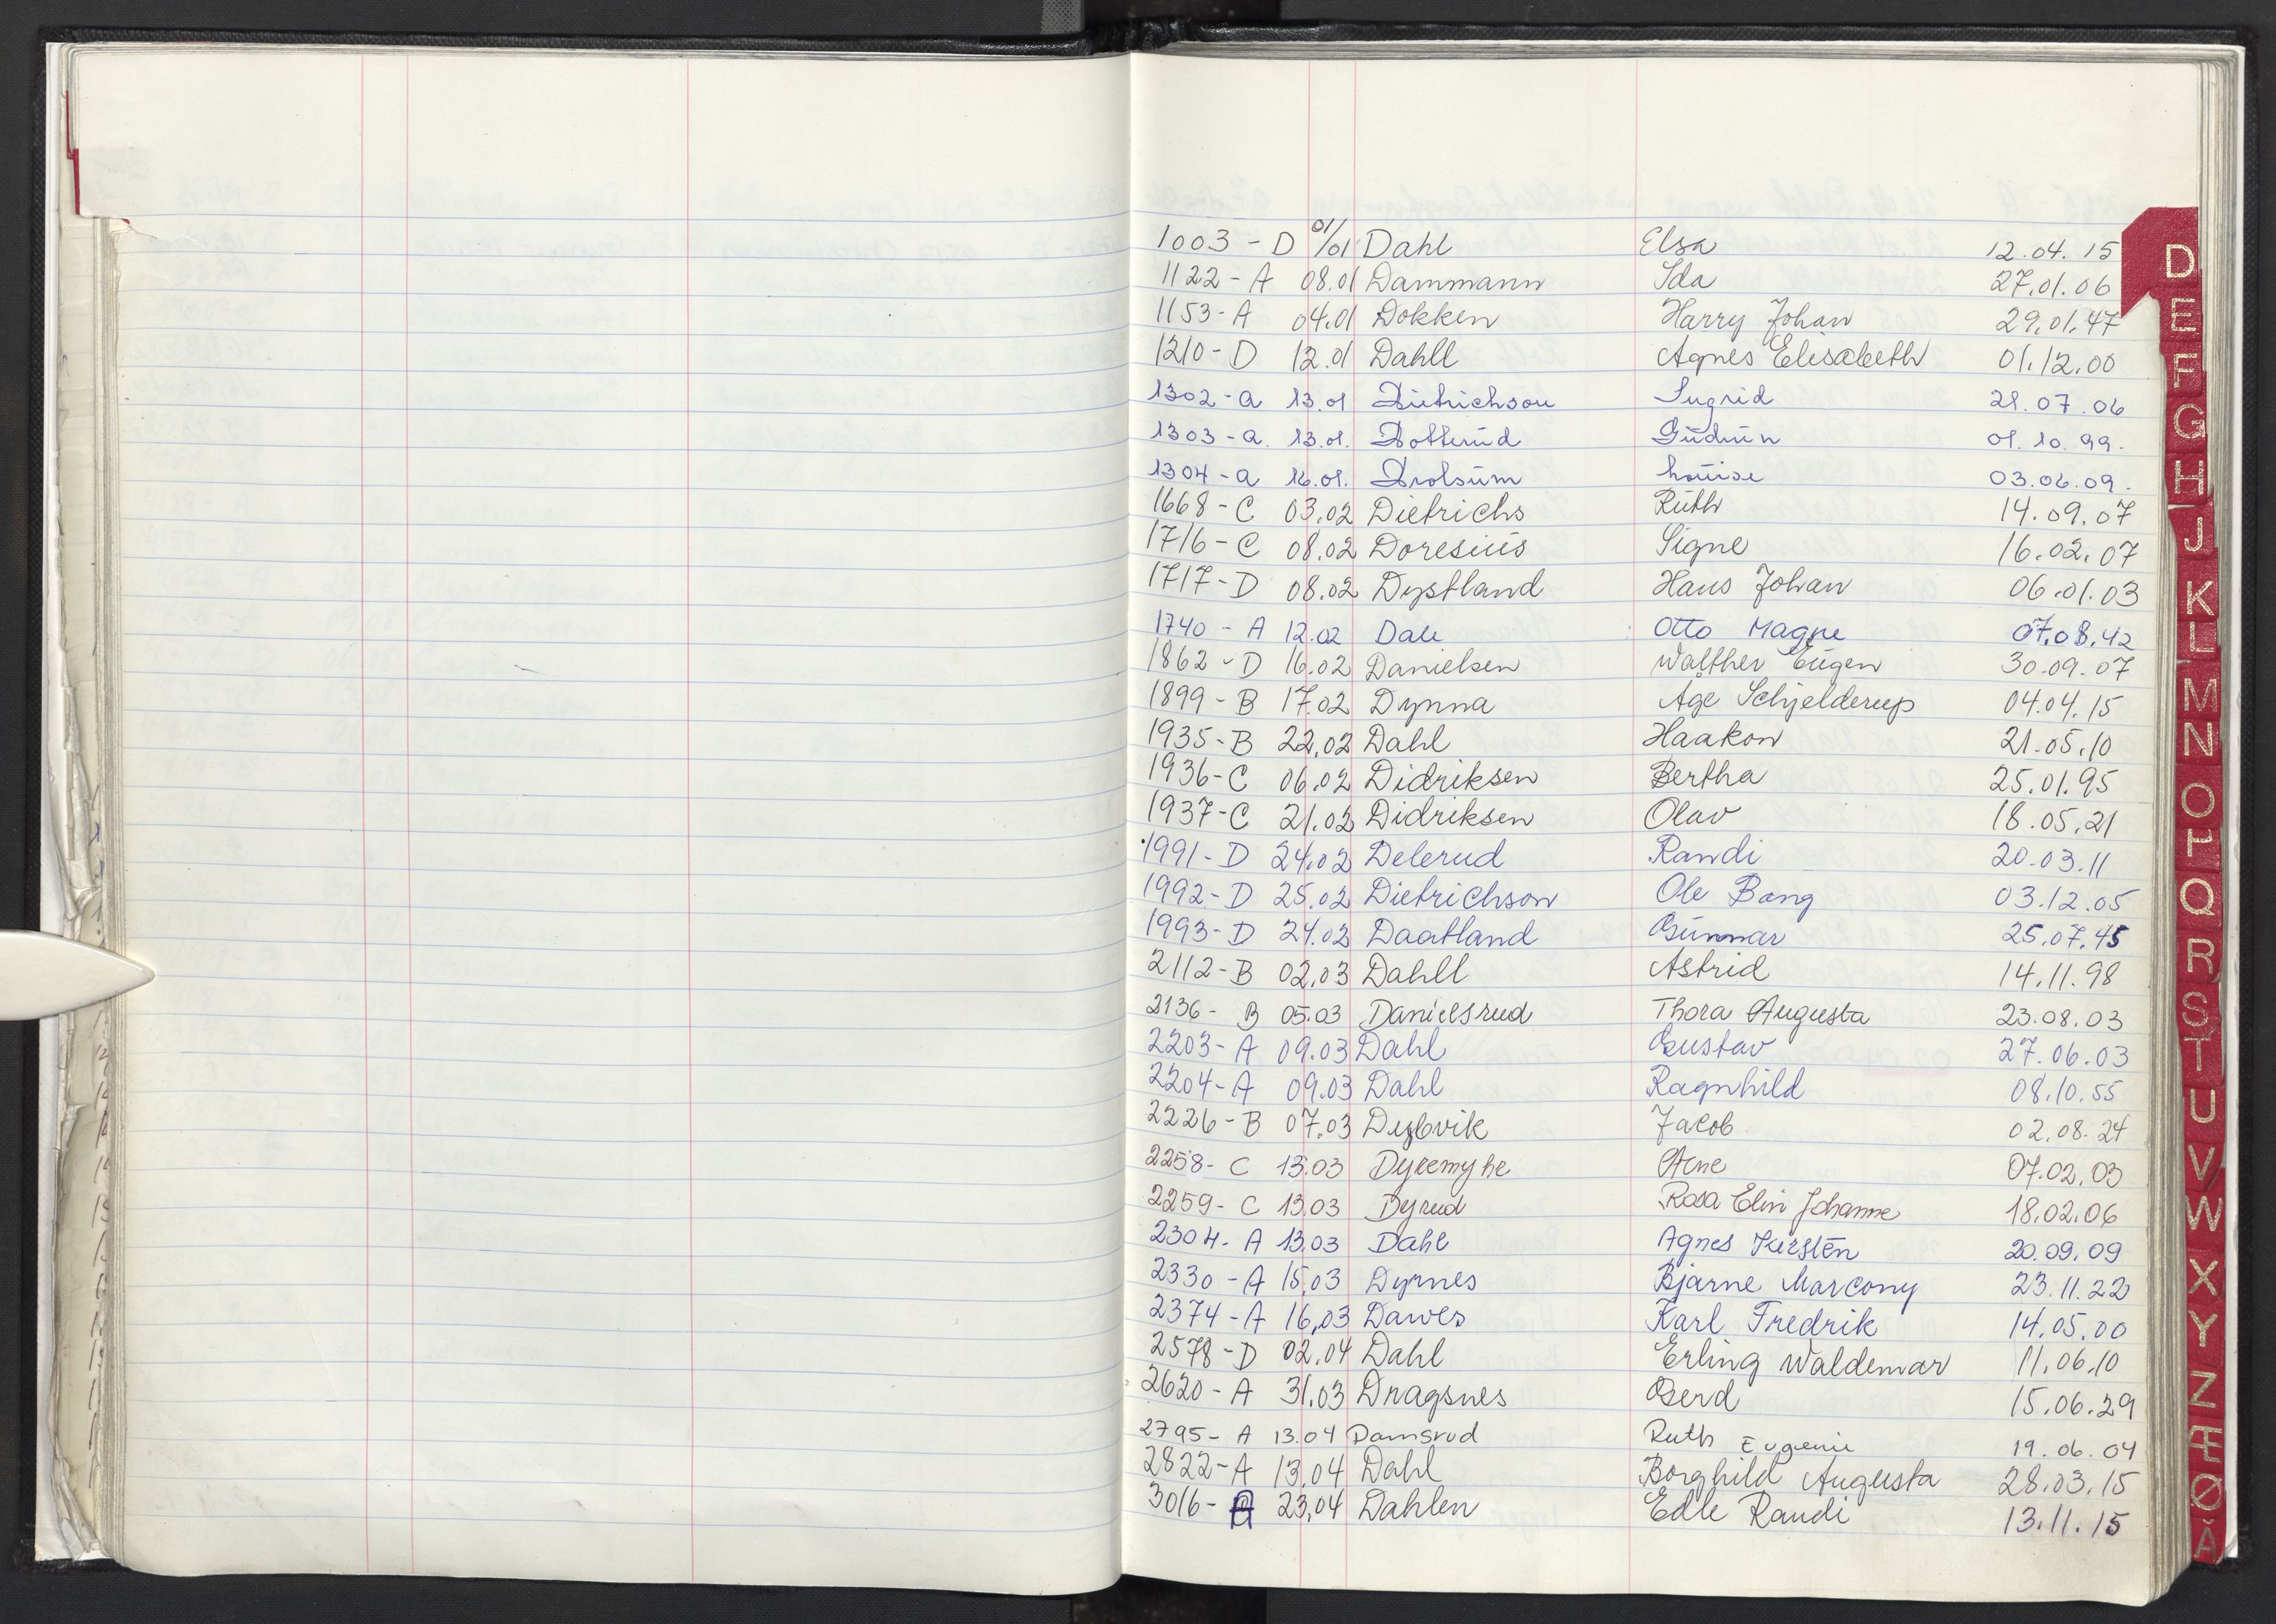 1003 - D 01/01 Dahl Elsa 12.04.15
1122 - A 08.01 Dammann Ida 27.01.06
1153 - A 04.01 Dokken Harry Johan 29.01.47
1210 - D 12.01 Dahll Agnes Elisabeth 01.12.00
1302 - a 13.01 Dietrichson Ingrid 21.07.06
1303 - a. 13.01. Dotterud Gudrun 01.10.99.
1304 - a 16.01. Drolsum Louise 03.06.09.
1668 - C 03.02 Dietrichs Ruth 14.09.07
1716 - C 08.02 Doresius Signe 16.02.07
1717 - D 08.02 Dystland Hans Johan 06.01.03
1740 - A 12.02 Dale Otto Magne 07.08.42
1862 - D 16.02 Danielsen Walther Eugen 30.09.07
1899 - B 17.02 Dynna Åge Schjelderup 04.04.15
1935 - B 22.02 Dahl Haakon 21.05.10
1936 - C 06.02 Didriksen Bertha 25.01.95
1937 - C 21.02 Didriksen Olav 18.05.21
1991 - D 24.02 Delerud Randi 20.03.11
1992 - D 25.02 Dietrichson Ole Bang 03.12.05
1993 - D 24.02 Daatland Gunnar 25.07.45
2112 - B 02.03 Dahll Astrid 14.11.98
2136 - B 05.03 Danielsrud Thora Augusta 23.08.03
2203 - A 09.03 Dahl Gustav 27.06.03
2204 - A 09.03 Dahl Ragnhild 08.10.55
2226 - B 07.03 Dybvik Jacob 02.08.24
2258 - C 13.03 Dyremyhr Arne 07.02.03
2259 - C 13.03 Dyrud Rosa Elin Johanne 18.02.06
2304 - A 13.03 Dahl Agnes Kirsten 20.09.09
2330 - A 15.03 Dyrnes Bjarne Marcony 23.11.22
2374 - A 16.03 Dawes Karl Fredrik 14.05.00
2578 - D 02.04 Dahl Erling Waldemar 11.06.10
2620 - A 31.03 Dragsnes Gerd 15.06.29
2795 - A 13.04 Damsrud Ruth Eugenie 19.06.04
2822 - A 13.04 Dahl Borghild Augusta 28.03.15
3016 - A 23.04 Dahlen Edle Randi 13.11.15
D
E
F
G
H
J
K
L
M
N
O
P
Q
R
S
T
U
V
W
X
Y
Z
Æ
Ø
Å